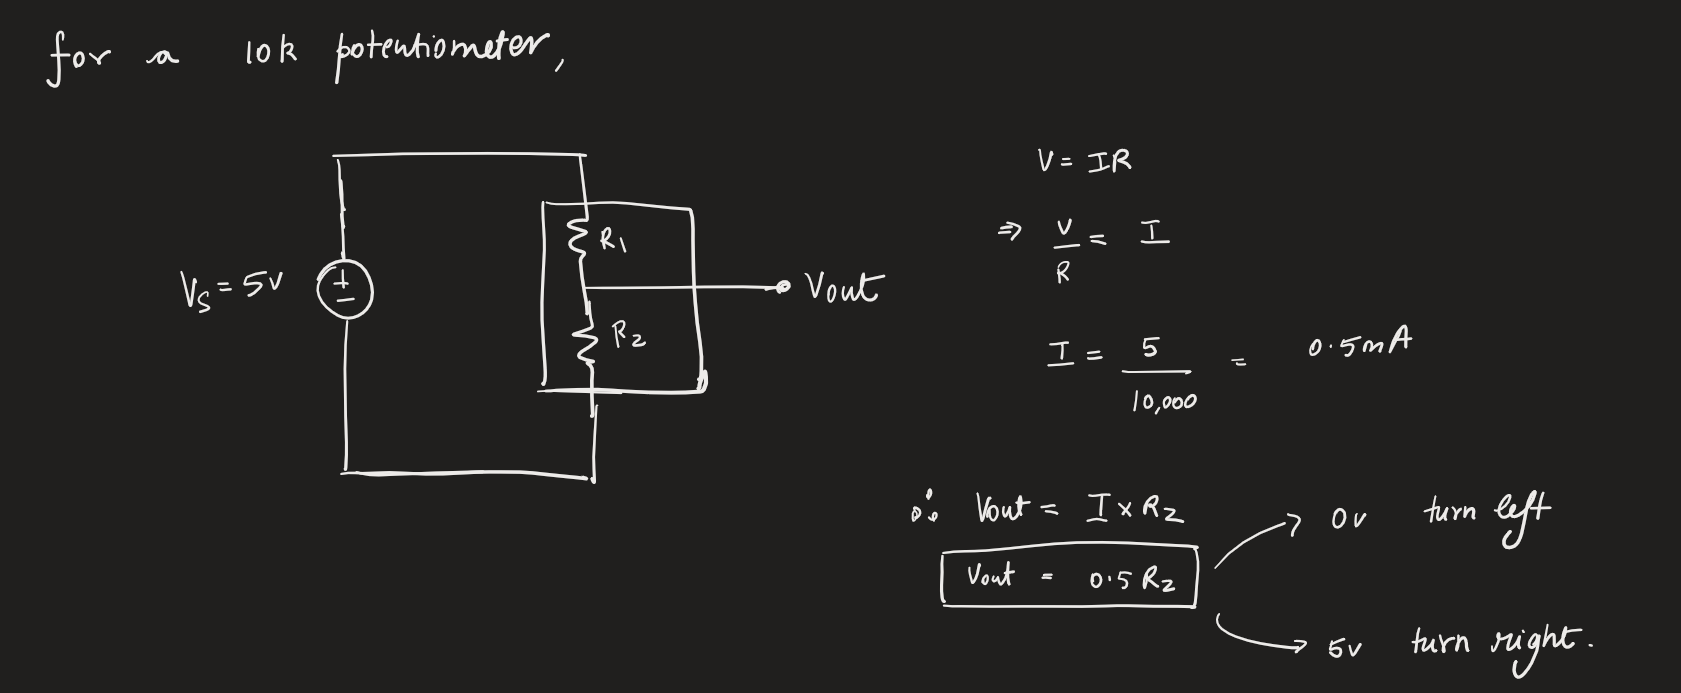 for a 10k potentiometer,
Vs = 5V
+
−
R1
R2
Vout
V = IR
⇒ V/R = I
I = 5/10,000 = 0.5mA
∴ Vout = I × R2
Vout = 0.5 R2
→ 0V turn left
→ 5V turn right.